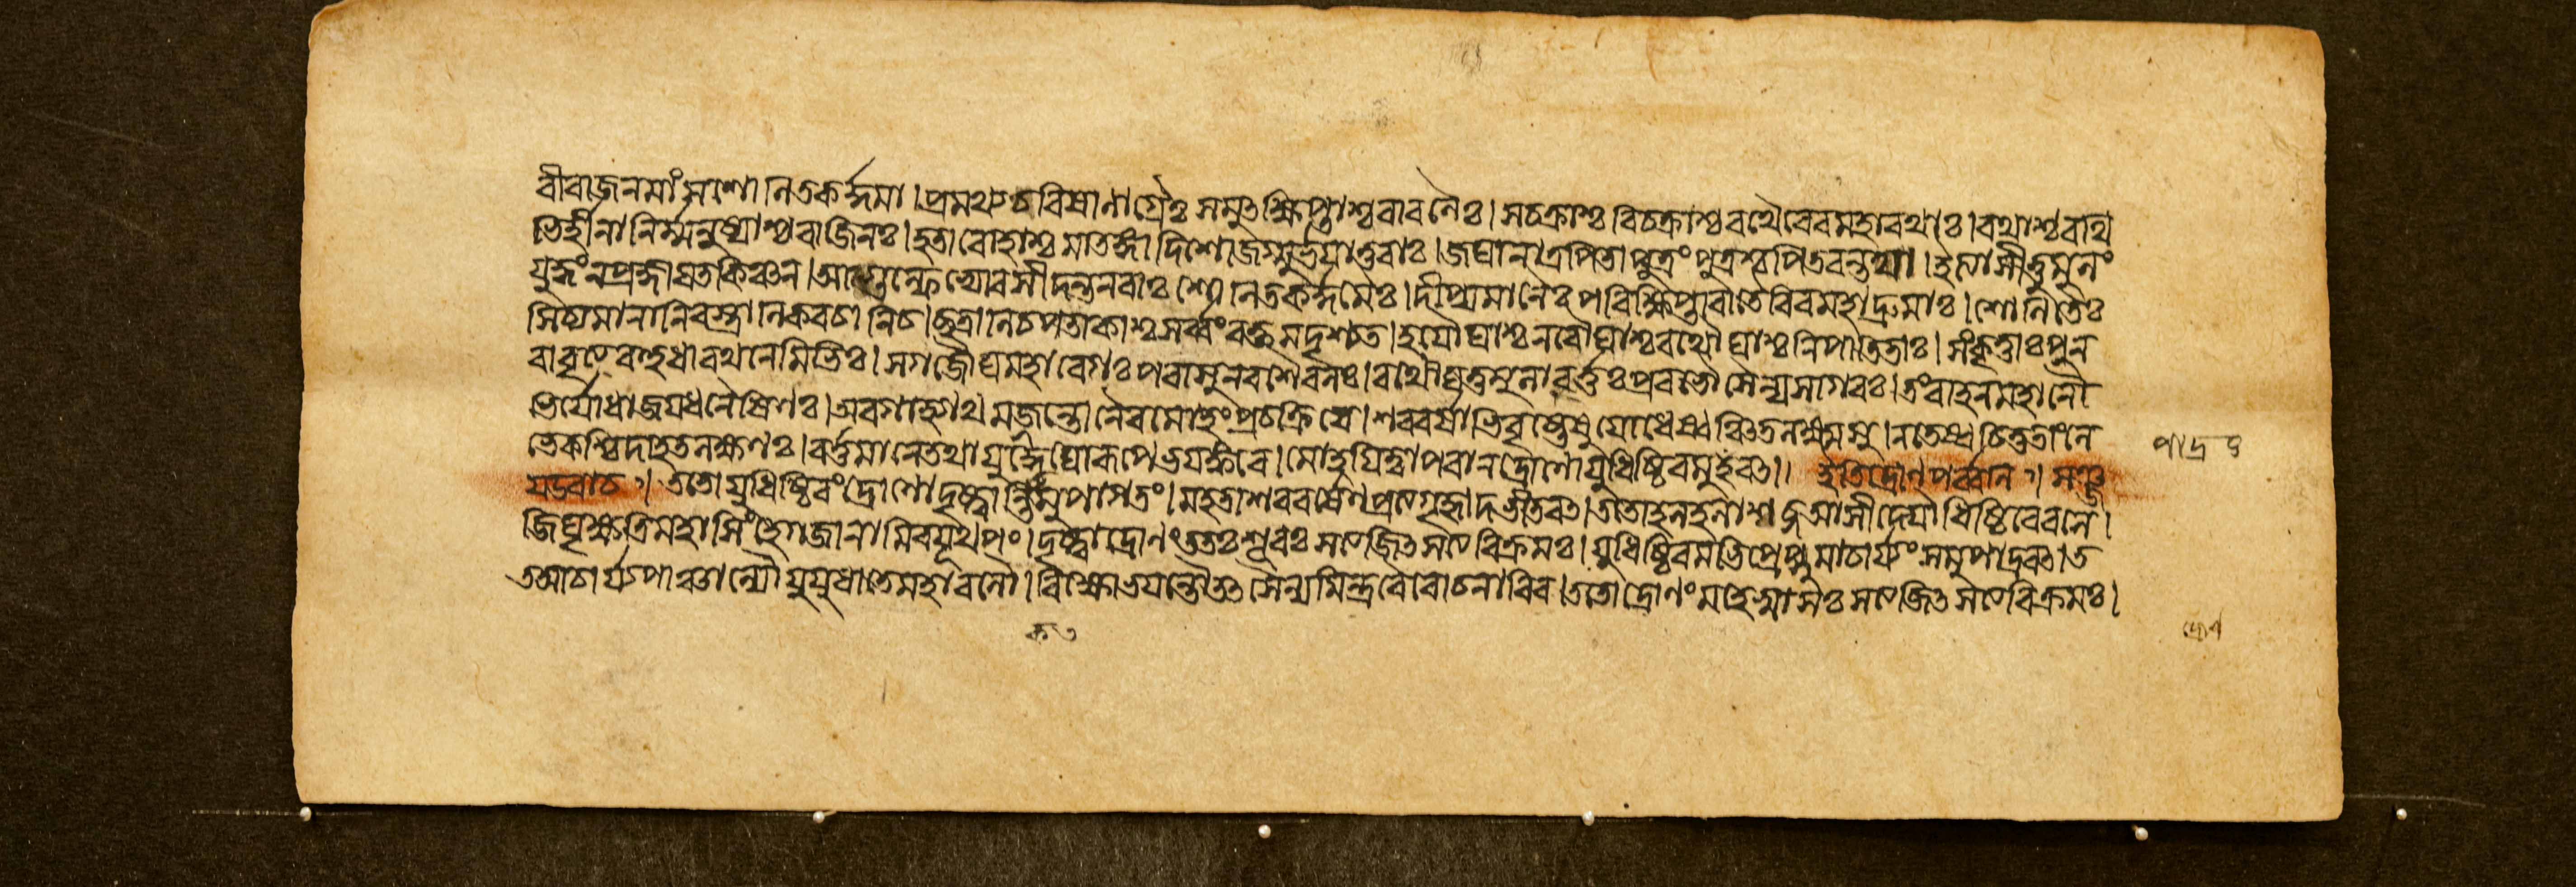 বীরাজনমাংসশোনিতকর্দ্দমা। প্রমথ্যচবিষানাগ্রৈঃ সমুৎক্ষিপ্তাশ্চবারনৈঃ। সচক্রাশ্চ বিচক্রাশ্চরথৈরেবমহারথাঃ। রথাশ্চরথি
ভির্হীনানির্ম্মনুষ্যাশ্চবাজিনঃ। হতারোহাশ্চ মাতঙ্গাদিশোজগ্মুর্ভয়াতুরাঃ। জঘানাত্রপিতাপুত্রং পুত্রশ্চপিতরন্তথা। ইত্যাসীত্তুমুলং
যুদ্ধংনপ্রজ্ঞায়তকিঞ্চন। আগুল্ফেভ্যোবসীদন্তনরাঃ শোনিতকর্দ্দমৈঃ। দীপ্যমানৈঃ পরিক্ষিপ্তাদাবৈরিবমহাদ্রুমাঃ। শোনিতৈঃ
সিচ্যমানানিবস্ত্রানিকবচানিচ। ছত্রানিচপতাকাশ্চ সর্ব্বংরক্তমদৃশ্যত। হয়ৌঘাশ্চনরৌঘাশ্চরথৌঘাশ্চনিপাতিতাঃ। সংবৃত্তাঃ পুন
রাবৃত্তেবহুধারথনেমিভিঃ। সগজৌঘমহাবেগঃ পরাসুনরশৈবলঃ। রথৌঘতুমুলাবর্ত্তঃ প্রবভৌসৈন্যসাগরঃ। তংবাহনমহানৌ
ভির্যোধাজয়ধনৈষিণঃ। অবগাহ্যাথমজ্জন্তোনৈবমোহংপ্রচক্রিরে। শরবর্ষাভিবৃষ্টেষুযোধেষ্বঞ্চিতলক্ষ্মসু। নতেষ্বচিত্ততাংলে
ভেকশ্চিদাহতলক্ষণঃ। বর্ত্তমানেতথাযুদ্ধেঘোররূপেভয়ঙ্করে। মোহয়িত্বাপরানদ্রোণোযুধিষ্ঠিরমু বৎ।। ইতিদ্রোণপর্ব্বনি।। সঞ্জ
য়উবাচ।। ততোযুধিষ্ঠিরংদ্রোণোদৃষ্ট্বান্তিকমুপাগতং। মহতাশরবর্ষেণপ্রত্যগৃহ্লাদভীতবৎ। ততোহলহলাশব্দআসীদ্যৌধিষ্ঠিরেবলে।
জিঘৃক্ষতিমহাসিংহেগজানামিবযূথপং। দৃষ্ট্বাদ্রোণংততঃশূরঃ সত্যজিৎসত্যবিক্রমঃ। যুধিষ্ঠিরমভিপ্রেপ্সুমাচার্য্যং সমুপাদ্রবৎ। ত
তআচার্য্যপাঞ্চাল্যৌযুযুধাতেমহাবলৌ। বিক্ষোভয়ন্তৌতৎসৈন্যমিন্দ্রবৈরোচনাবিব। ততোদ্রোণং মহেষ্বাসঃ সত্যজিৎসত্যবিক্রমঃ।